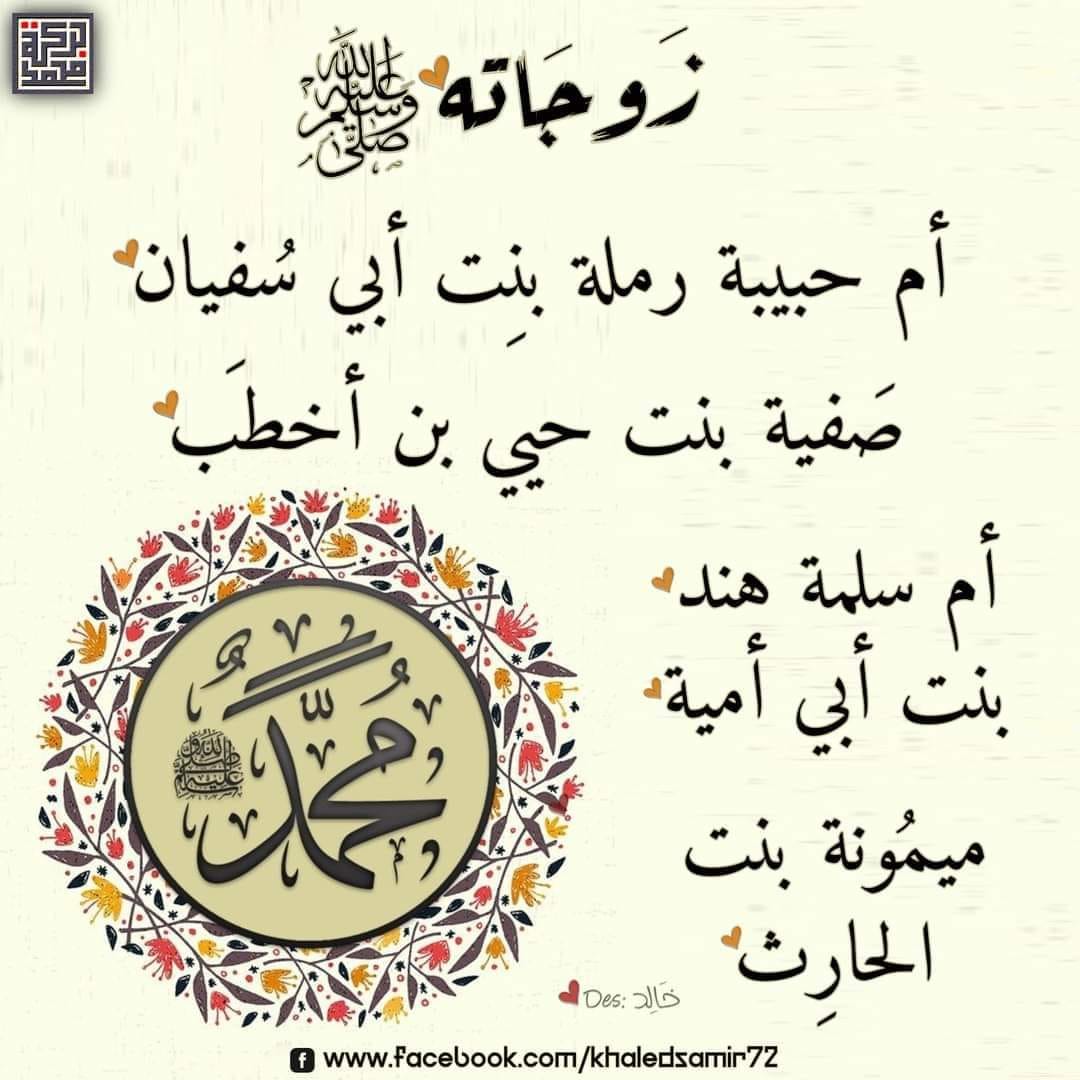 زَوجَاته ﷺ
أم حبيبة رملة بنِت أبي سُفيان
صَفية بنت حيي بن أخطَب
أم سلمة هند
بنت أبي أمية
مُحمَّدٌ
ﷺ
ميمُونة بنت
الحارِث
Des: خَالِد
www.facebook.com/khaledsamir72